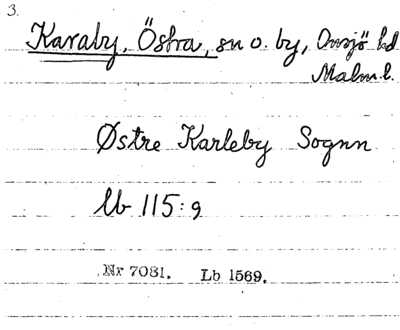 3.
Karaby, Östra, sn o. by, Onsjö hd
Malm l.
Østre Karleby Sognn
lb 115:9
Nr 7081. Lb 1569.